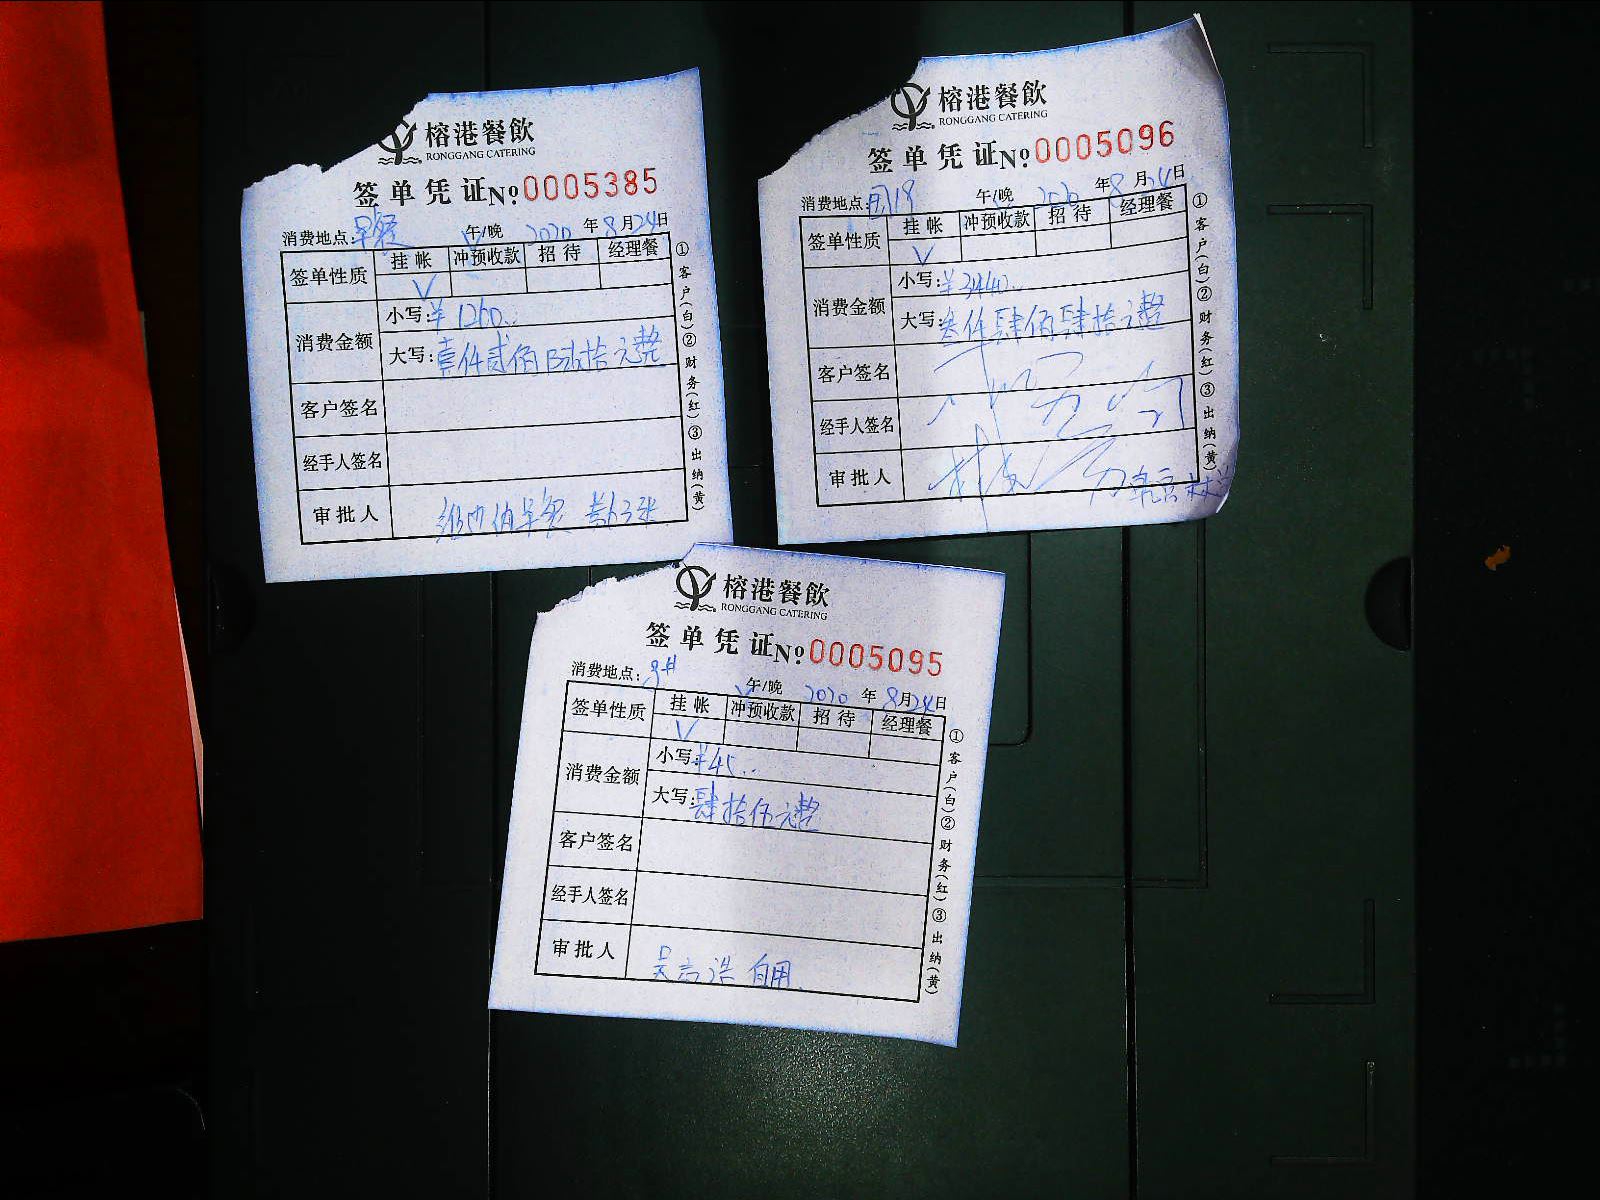 榕港餐飲
RONGGANG CATERING
签单凭证 №0005385
消费地点：早餐 午/晚 2020年8月24日
签单性质 挂帐 冲预收款 招待 经理餐
√
消费金额 小写：¥1260..
大写：壹仟贰佰陆拾元整
客户签名
经手人签名
审批人 早餐
①客户(白)②财务(红)③出纳(黄)
榕港餐飲
RONGGANG CATERING
签单凭证 №0005096
消费地点： 午/晚 年8月24日
签单性质 挂帐 冲预收款 招待 经理餐
√
消费金额 小写：¥3440..
大写：叁仟肆佰肆拾元整
客户签名
经手人签名
审批人
①客户(白)②财务(红)③出纳(黄)
榕港餐飲
RONGGANG CATERING
签单凭证 №0005095
消费地点： 午/晚 2020年8月24日
签单性质 挂帐 冲预收款 招待 经理餐
√
消费金额 小写：¥45..
大写：肆拾伍元整
客户签名
经手人签名
审批人 吴志浩 自用
①客户(白)②财务(红)③出纳(黄)